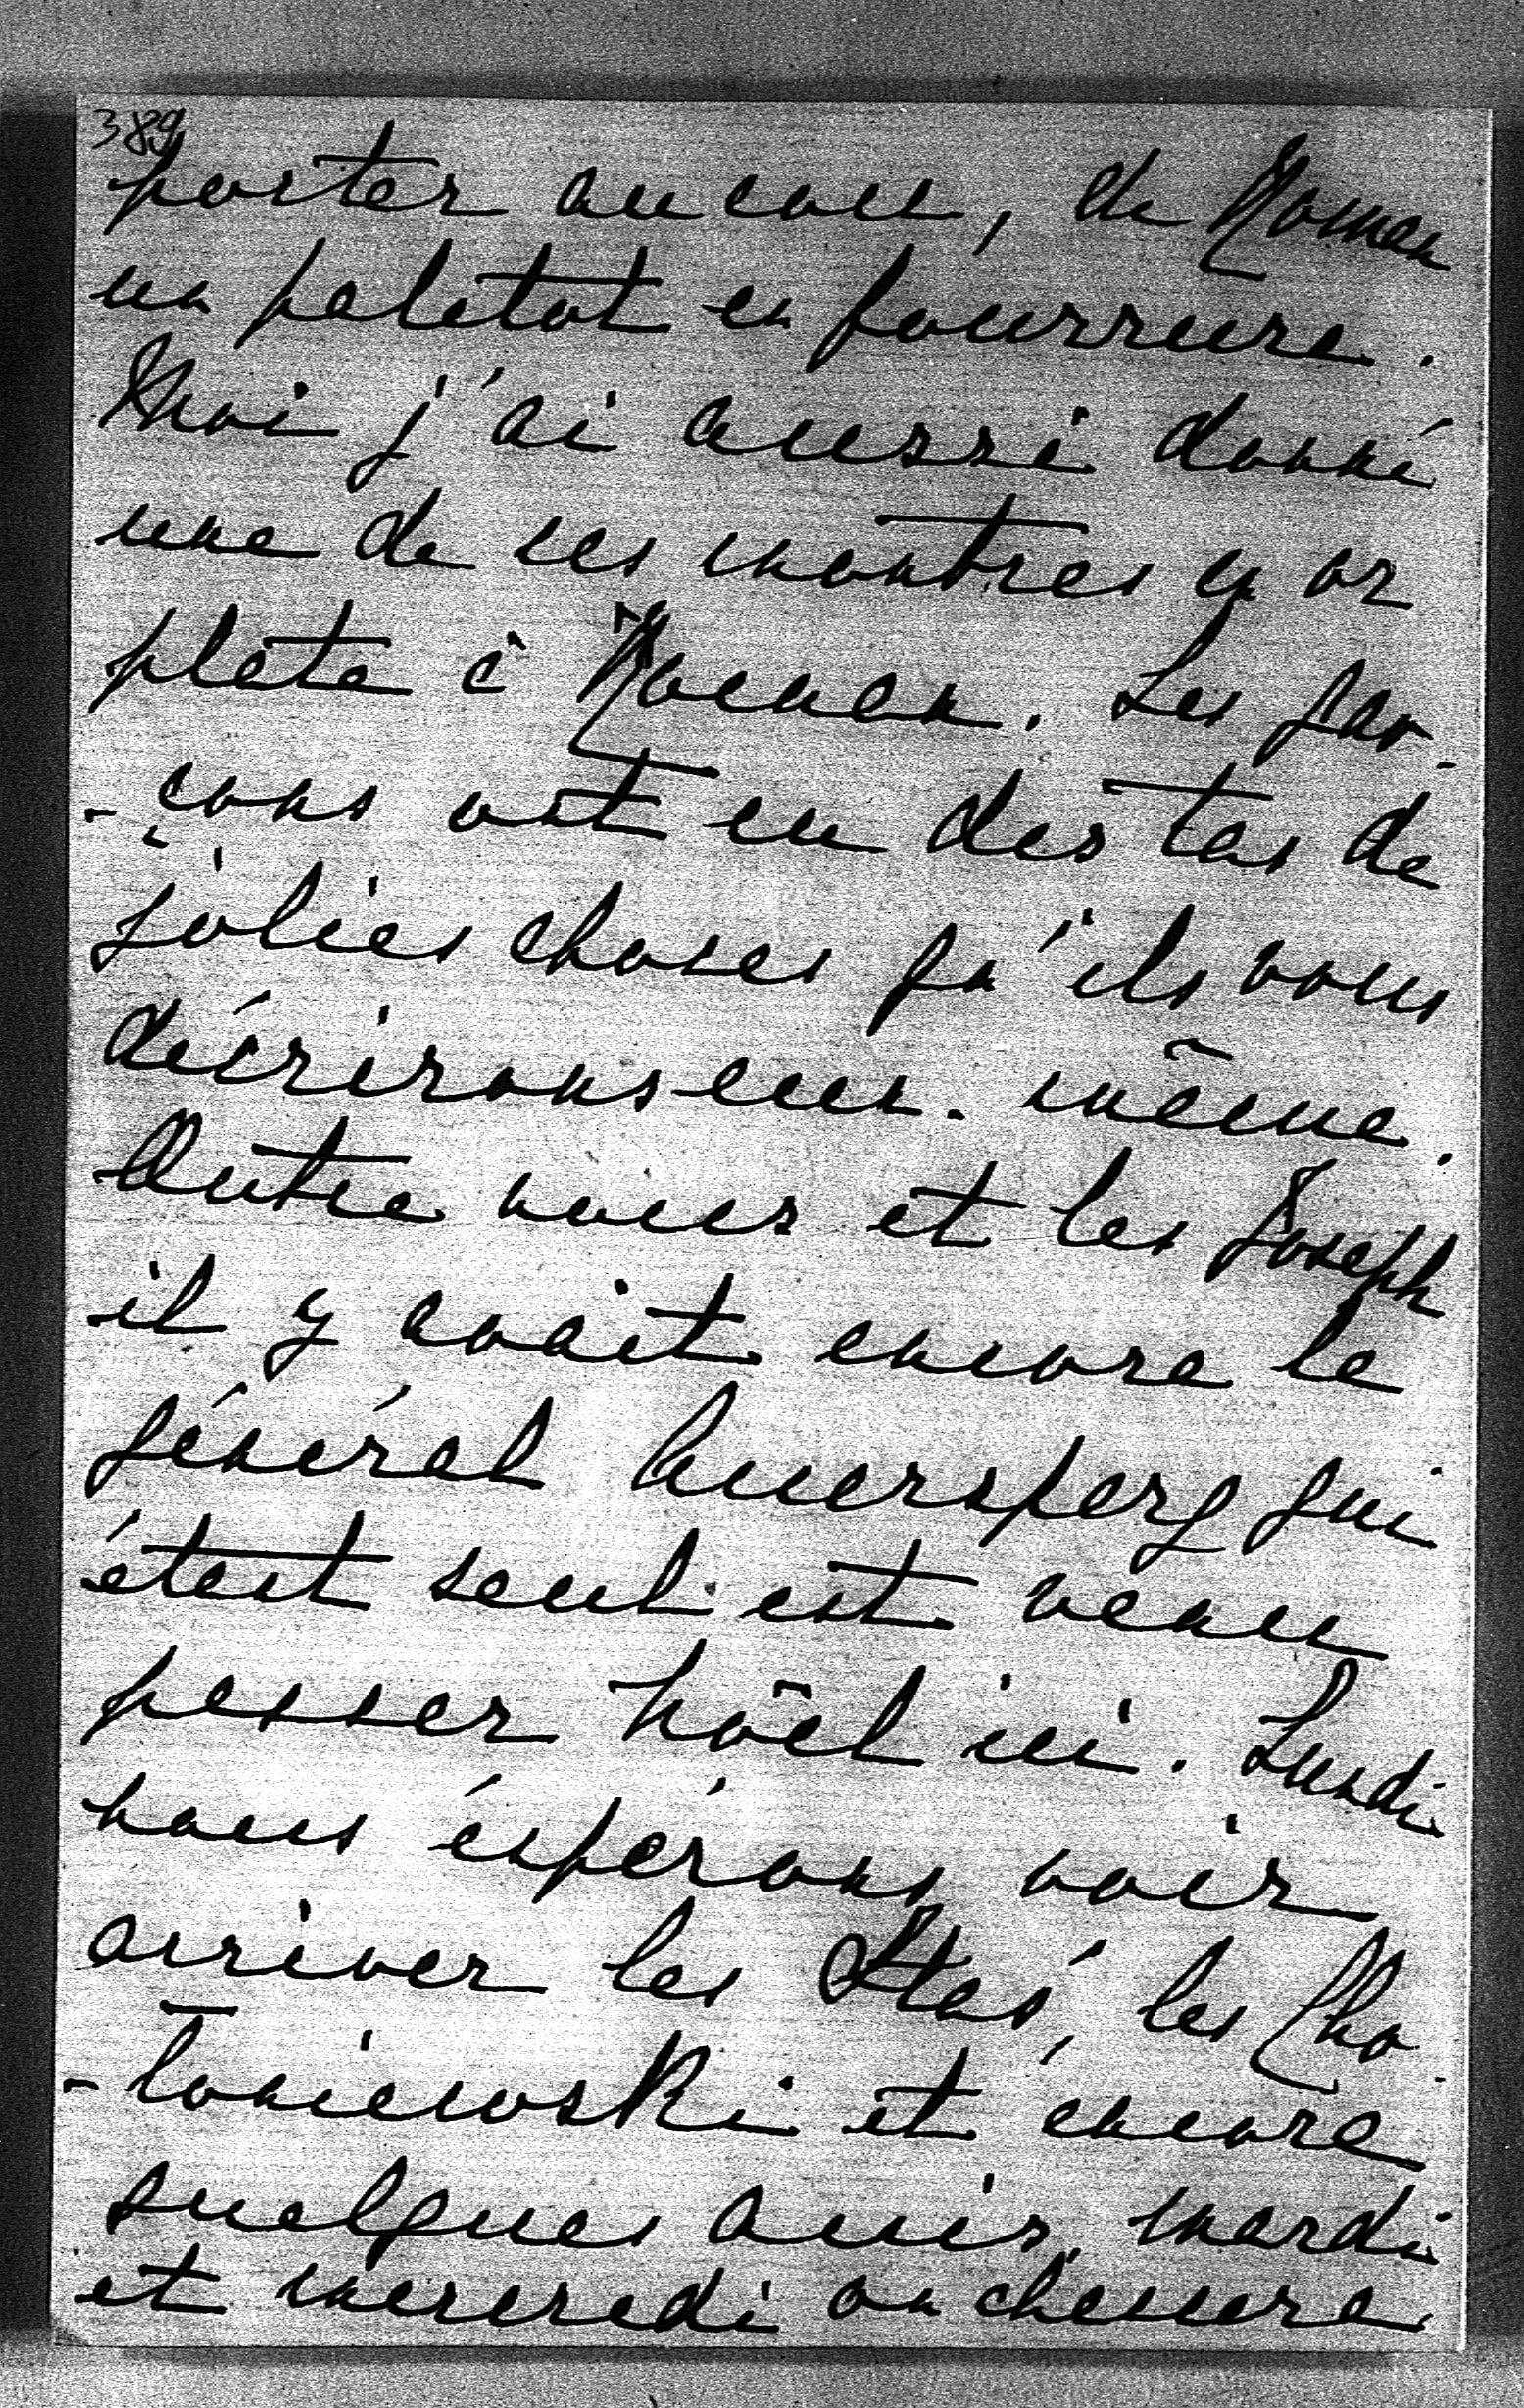 389
porter au cou, de Roman
un paletot en fourrure.
Moi j'ai aussi donné
une de ses montres en or
plate à Roman. Les gar-
-çons ont eu des tas de
jolies choses qu'ils vous
décrirons eux-même.
Outre nous et les Joseph
il y avait encore le
général Auersperg qui
étant seul est venu
passer Noël ici. Lundi
nous éspérons voir
arriver les Staś, les Cho-
-toniewski et encore
quelques amis, mardi
et mercredi on chassera